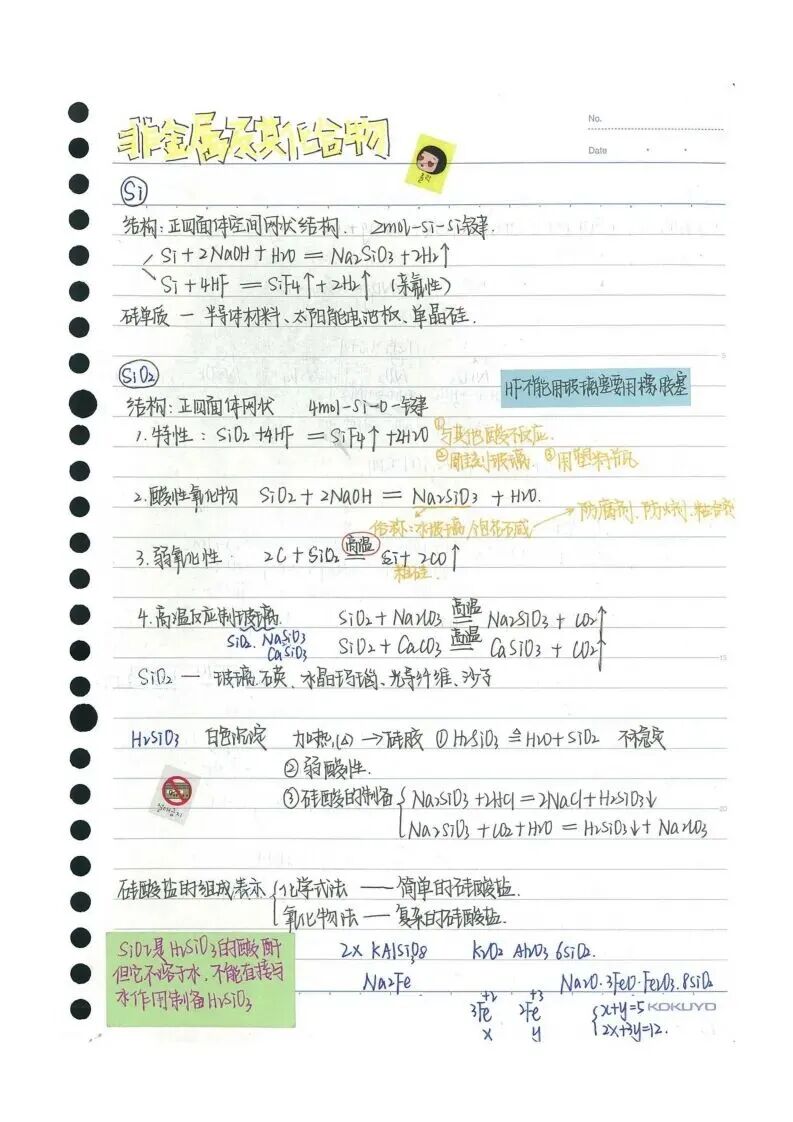 非金属及其化合物
No.
Date
Si
结构:正四面体空间网状结构. 2mol-Si-Si键.
Si+2NaOH+H2O=Na2SiO3+2H2↑
Si+4HF=SiF4↑+2H2↑ (亲氟性)
硅单质 — 半导体材料、太阳能电池板、单晶硅.
SiO2
HF不能用玻璃塞要用橡胶塞
结构:正四面体网状 4mol-Si-O-键
1.特性: SiO2+4HF=SiF4↑+2H2O ①与其他酸不反应.
②雕刻玻璃. ③用塑料瓶
2.酸性氧化物 SiO2+2NaOH=Na2SiO3+H2O.
俗称:水玻璃,泡花碱 防腐剂.防火剂.粘合剂
3.弱氧化性. 2C+SiO2 高温 Si+2CO↑
粗硅.
4.高温反应制玻璃. SiO2+Na2CO3 高温 Na2SiO3+CO2↑
SiO2. NaSiO3
CaSiO3
SiO2+CaCO3 高温 CaSiO3+CO2↑
SiO2 — 玻璃.石英、水晶玛瑙、光导纤维、沙子
H2SiO3 白色沉淀 加热(△)→硅胶 ①H2SiO3≜H2O+SiO2 不稳定
②弱酸性.
③硅酸的制备 Na2SiO3+2HCl=2NaCl+H2SiO3↓
Na2SiO3+CO2+H2O=H2SiO3↓+Na2CO3
硅酸盐的组成表示 化学式法 — 简单的硅酸盐.
氧化物法 — 复杂的硅酸盐.
SiO2是H2SiO3的酸酐
但它不溶于水.不能直接与
水作用制备H2SiO3
2x KAlSi3O8 K2O2 Al2O3 6SiO2.
Na2Fe Na2O·3FeO·Fe2O3·8SiO2
+2 +3
3Fe 2Fe x+y=5
x y 2x+3y=12.
KOKUYO